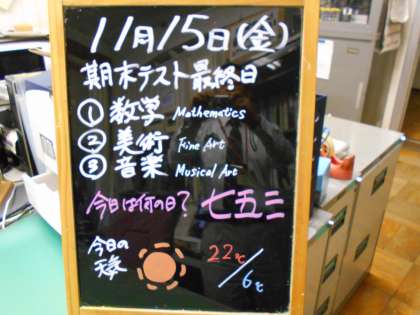 11月15日(金)
期末テスト最終日
① 数学 Mathematics
② 美術 Fine Art
③ 音楽 Musical Art
今日は何の日? 七五三
今日の
天気
22℃/6℃